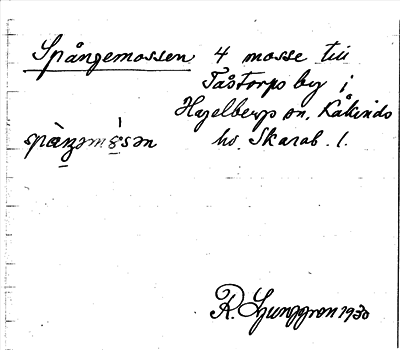 Spångemossen 4 mosse till
Tåstorps by i
Hagelbergs sn. Kåkinds
hs. Skarab. l.
spàŋəmɷ̀sən
R. Ljunggren 1930